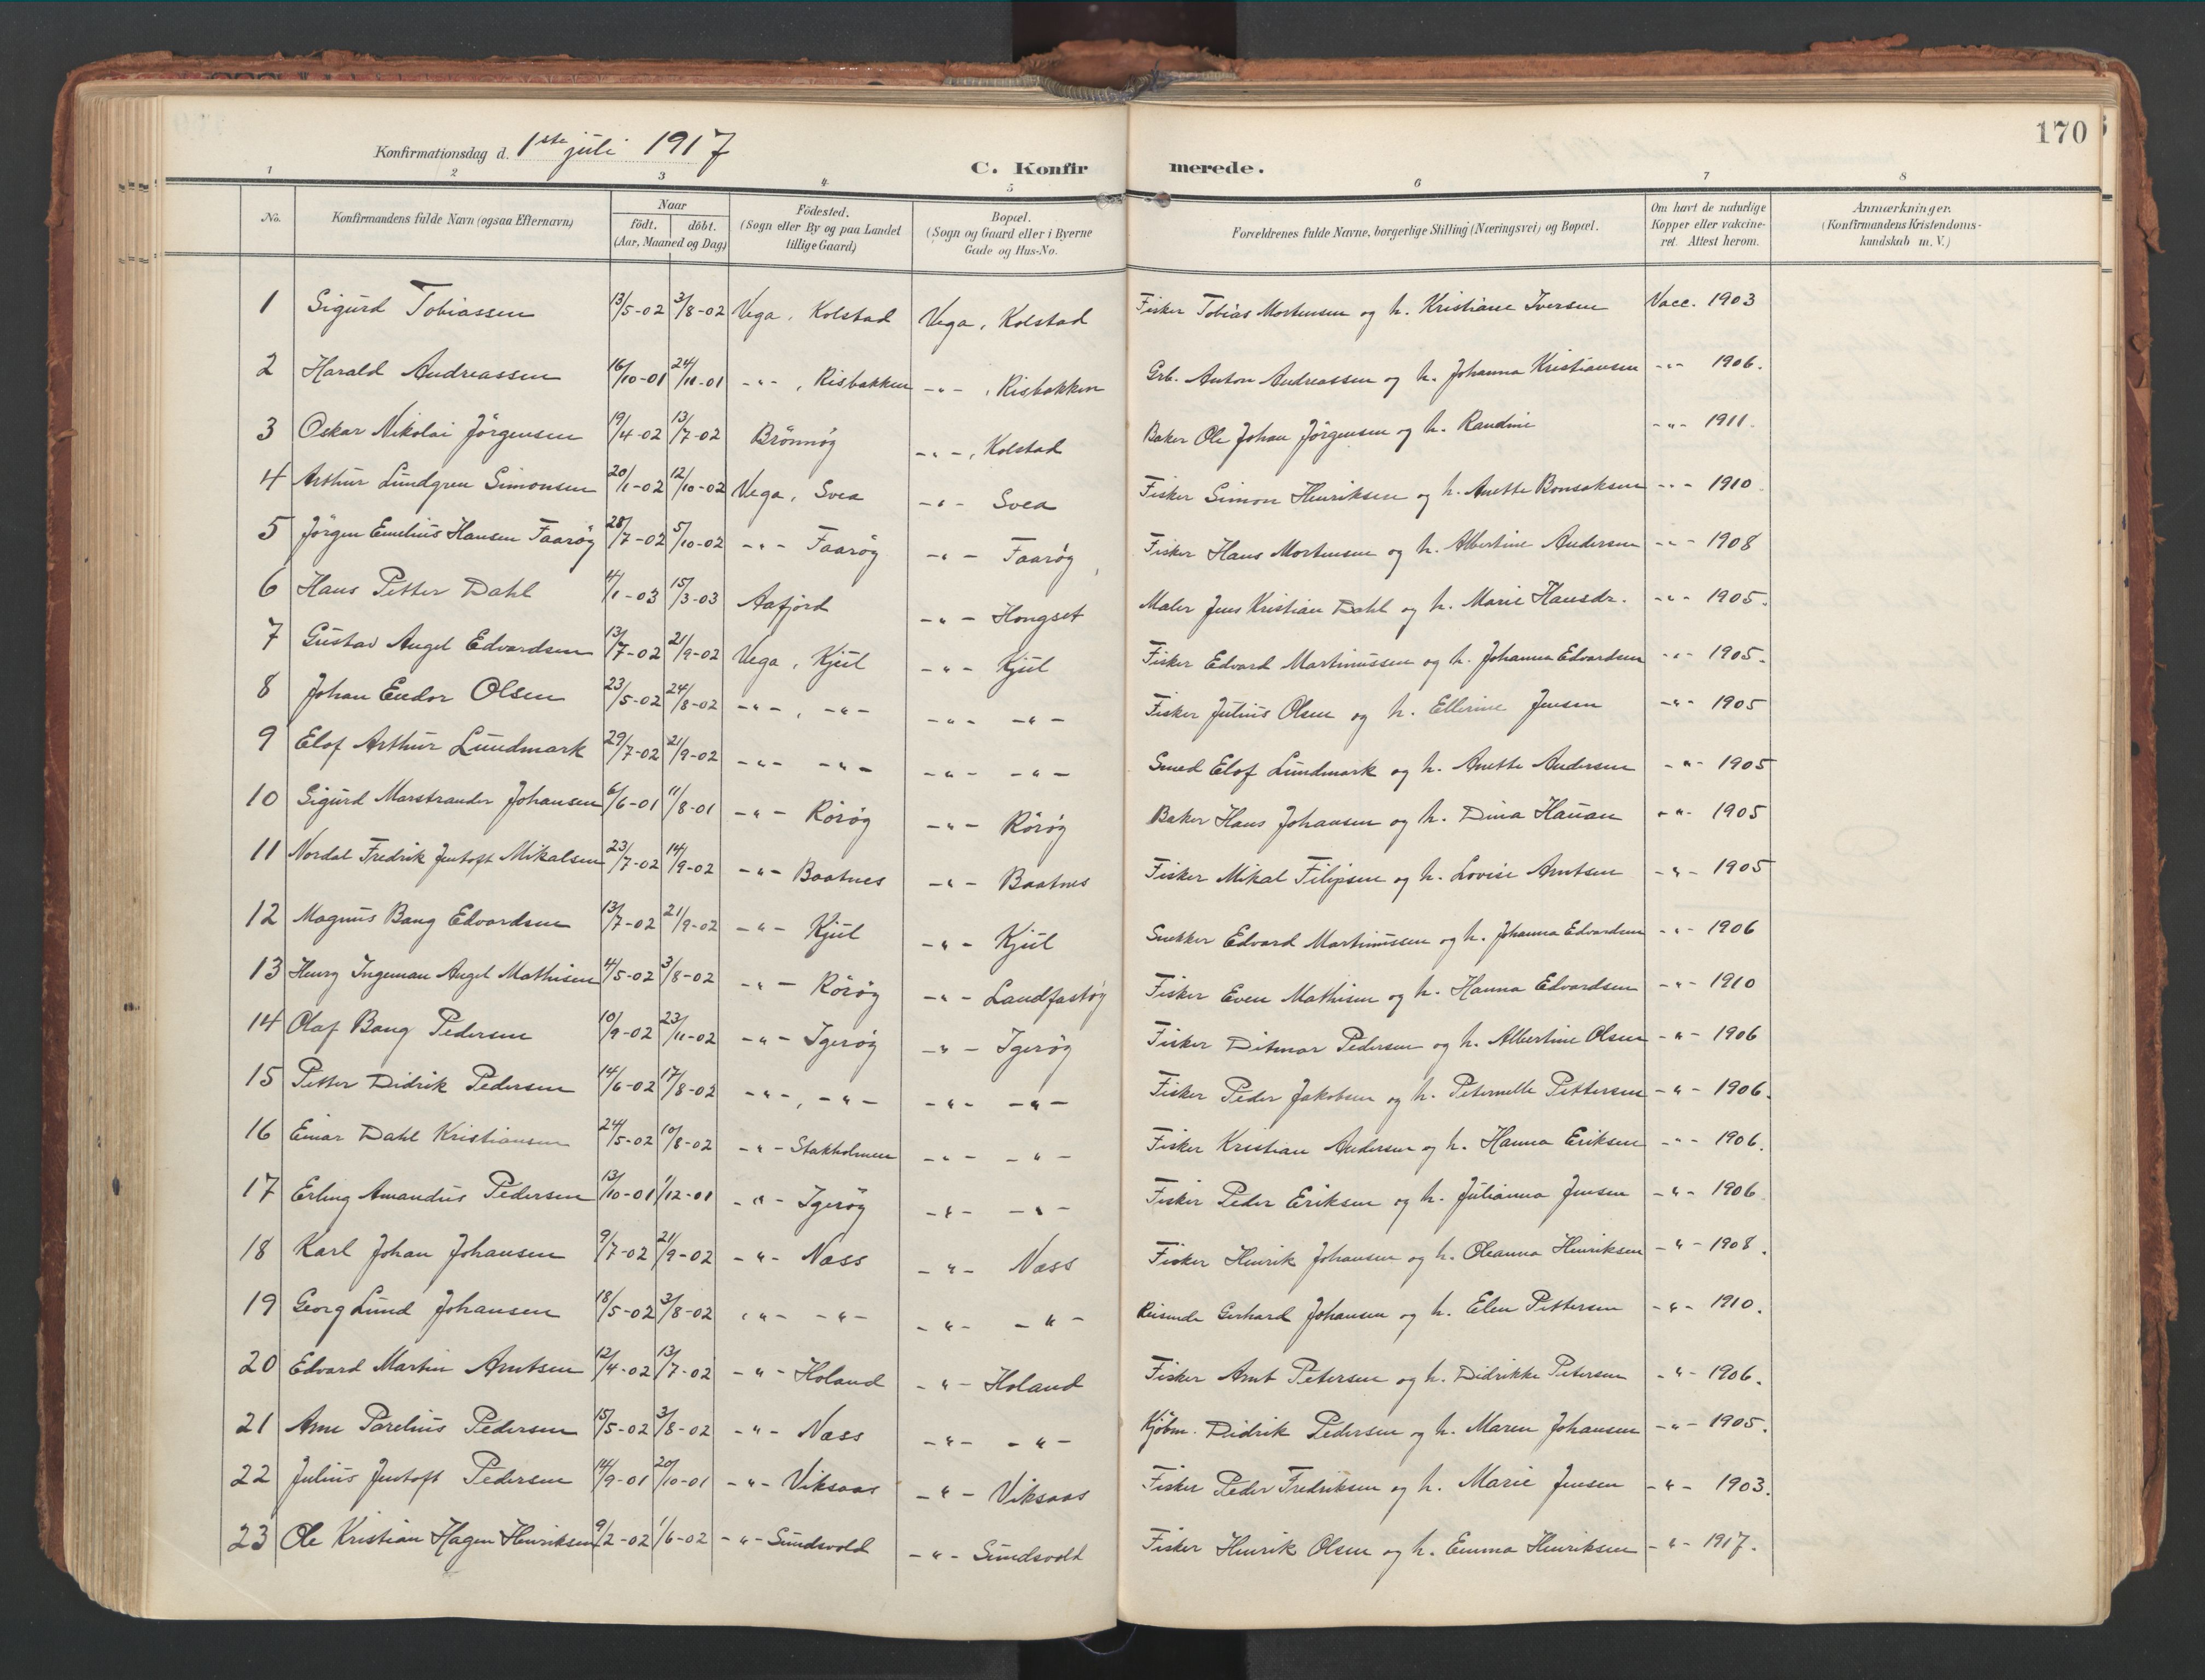 170
Konfirmationsdag d. 1ste juli 1917
C. Konfirmerede.
1 2 3 4 5 6 7 8
No. | Konfirmandens fulde Navn (ogsaa Efternavn) | Naar födt. | döbt. (Aar, Maaned og Dag) | Födested. (Sogn eller By og paa Landet tillige Gaard) | Bopæl. (Sogn og Gaard eller i Byerne Gade og Hus-No. | Forældrenes fulde Navne, borgerlige Stilling (Næringsvei) og Bopæl. | Om havt de naturlige Kopper eller vaccineret. Attest herom. | Anmærkninger. (Konfirmandens Kristendomskundskab m. V.)
1 Sigurd Tobiassen 13/5-02 3/8-02 Vega, Kolstad Vega, Kolstad Fisker Tobias Mortensen og h. Kristiane Iversen Vacc. 1903
2 Harald Andreassen 16/10-01 24/11-01 -"-, Risbakken -"-, Risbakken Grb. Anton Andreassen og h. Johanna Kristiansen -"- 1906.
3 Oskar Nikolai Jörgensen 19/4-02 13/7-02 Brönnöy -"-, Kolstad Baker Ole Johan Jörgensen og h. Randine -"- 1911.
4 Arthur Lundgren Simonsen 20/1-02 12/10-02 Vega, Svea -"- Svea Fisker Simon Henriksen og h. Anette Bonsaksen -"- 1910
5 Jörgen Emelius Hansen Faaröy 28/7-02 5/10-02 -"- Faaröy -"- Faaröy, Fisker Hans Mortensen og h. Albertine Andersen -"- 1908
6 Hans Petter Dahl 4/1-03 15/3-03 Aafjord -"- Hongset Maler Jens Kristian Dahl og h. Marie Hansdr. -"- 1905.
7 Gustav Angel Edvardsen 13/7-02 21/9-02 Vega, Kjul -"- Kjul Fisker Edvard Martinussen og h. Johanna Edvardsen -"- 1905.
8 Johan Eudor Olsen 23/5-02 24/8-02 -"-, -"- -"- -"- Fisker Julius Olsen og h. Ellerine Jensen -"- 1905
9 Elof Arthur Lundmark 29/7-02 21/9-02 -"- -"- -"- -"- Smed Elof Lundmark og h. Anette Andersen -"- 1905
10 Sigurd Marstrander Johansen 6/6-01 11/8-01 -"- Röröy -"- Röröy Baker Hans Johansen og h. Dina Hauan -"- 1905
11 Nordal Fredrik Jentoft Mikalsen 23/7-02 14/9-02 -"- Baatnes -"- Baatnes Fisker Mikal Filipsen og h. Lovise Arntsen -"- 1905
12 Magnus Bang Edvardsen 13/7-02 21/9-02 -"- Kjul -"- Kjul Snekker Edvard Martinussen og h. Johanna Edvardsen -"- 1906
13 Henry Ingeman Angel Mathisen 4/5-02 3/8-02 -"- Röröy -"- Landfastöy Fisker Even Mathisen og h. Hanna Edvardsen -"- 1910
14 Olaf Bang Pedersen 10/9-02 23/11-02 -"- Igeröy -"- Igeröy Fisker Ditmar Pedersen og h. Albertine Olsen -"- 1906
15 Petter Didrik Pedersen 14/6-02 17/8-02 -"-, -"- -"- -"- Fisker Peder Jakobsen og h. Peternelle Pettersen -"- 1906.
16 Einar Dahl Kristiansen 24/5-02 10/8-02 -"- Stakholmen -"- -"- Fisker Kristian Andersen og h. Hanna Eriksen -"- 1906.
17 Erling Amandus Pedersen 13/10-01 1/12-01 -"- Igeröy -"- -"- Fisker Peder Eriksen og h. Julianna Jensen -"- 1906
18 Karl Johan Johansen 9/7-02 21/9-02 -"- Næss -"- Næss Fisker Henrik Johansen og h. Oleanna Henriksen -"- 1908.
19 Georg Lund Johansen 18/5-02 3/8-02 -"- -"- -"- -"- Reisende Gerhard Johansen og h. Elen Pettersen -"- 1910.
20 Edvard Martin Arntsen 12/4-02 13/7-02 -"- Holand -"- Holand Fisker Arnt Petersen og h. Didrikke Petersen -"- 1906.
21 Arne Parelius Pedersen 15/5-02 3/8-02 -"- Næss -"- -"- Kjöbm. Didrik Pedersen og h. Maren Johansen -"- 1905.
22 Julius Jentoft Pedersen 14/9-01 20/10-01 -"- Viksaas -"- Viksaas Fisker Peder Fredriksen og h. Marie Jensen -"- 1903.
23 Ole Kristian Hagen Henriksen 9/2-02 1/6-02 -"- Sundsvold -"- Sundsvold Fisker Henrik Olsen og h. Emma Henriksen -"- 1917.